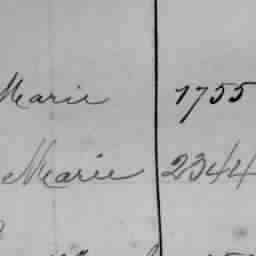 Marie 1755
Marie 2344